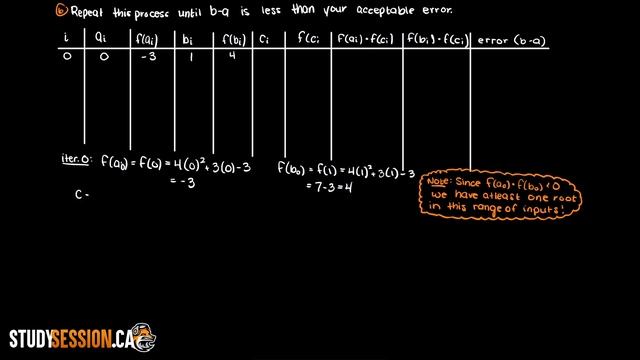 ⑥ Repeat this process until b-a is less than your acceptable error.
i ai f(ai) bi f(bi) ci f(ci f(ai)·f(ci) f(bi)·f(ci) error (b-a)
0 0 -3 1 4
iter.0: f(a0) = f(0) = 4(0)²+3(0)-3
= -3
f(b0) = f(1) = 4(1)²+3(1)-3
= 7-3=4
c -
Note: Since f(a0)·f(b0)<0
we have atleast one root
in this range of inputs!
STUDYSESSION.CA